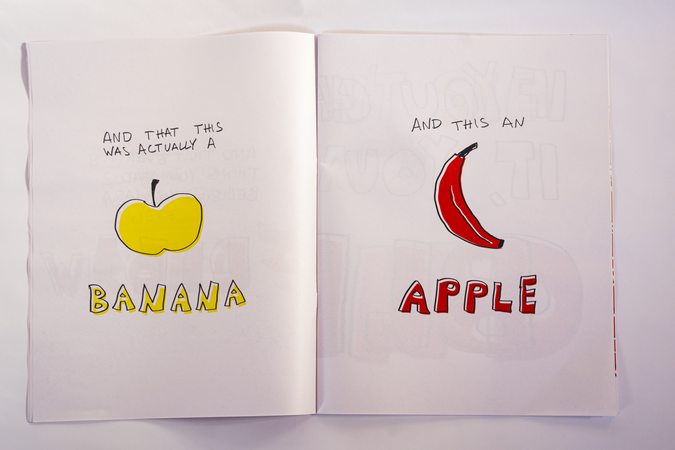 AND THAT THIS
WAS ACTUALLY A
BANANA
AND THIS AN
APPLE